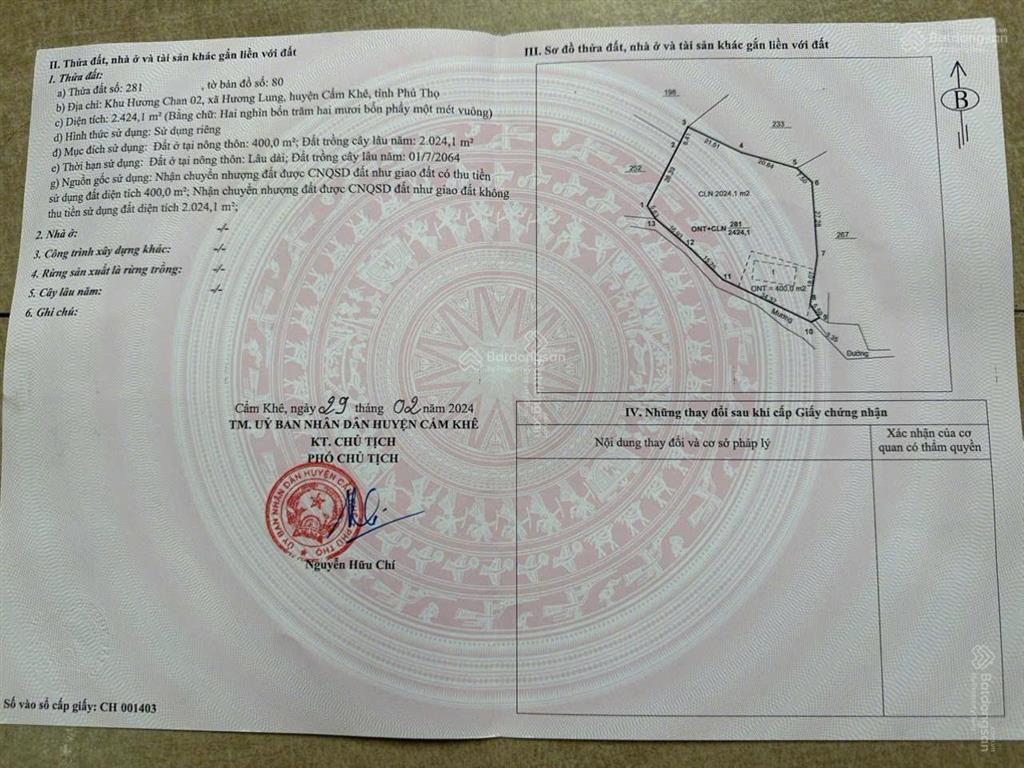 II. Thửa đất, nhà ở và tài sản khác gắn liền với đất
1. Thửa đất:
a) Thửa đất số: 281 , tờ bản đồ số: 80
b) Địa chỉ: Khu Hương Chan 02, xã Hương Lung, huyện Cẩm Khê, tỉnh Phú Thọ
c) Diện tích: 2.424,1 m² (Bằng chữ: Hai nghìn bốn trăm hai mươi bốn phẩy một mét vuông)
d) Hình thức sử dụng: Sử dụng riêng
đ) Mục đích sử dụng: Đất ở tại nông thôn: 400,0 m²; Đất trồng cây lâu năm: 2.024,1 m²
e) Thời hạn sử dụng: Đất ở tại nông thôn: Lâu dài; Đất trồng cây lâu năm: 01/7/2064
g) Nguồn gốc sử dụng: Nhận chuyển nhượng đất được CNQSD đất như giao đất có thu tiền
sử dụng đất diện tích 400,0 m²; Nhận chuyển nhượng đất được CNQSD đất như giao đất không
thu tiền sử dụng đất diện tích 2.024,1 m²;
2. Nhà ở: -/-
3. Công trình xây dựng khác: -/-
4. Rừng sản xuất là rừng trồng: -/-
5. Cây lâu năm: -/-
6. Ghi chú:
Cẩm Khê, ngày 29 tháng 02 năm 2024
TM. UỶ BAN NHÂN DÂN HUYỆN CẨM KHÊ
KT. CHỦ TỊCH
PHÓ CHỦ TỊCH
Nguyễn Hữu Chí
Số vào sổ cấp giấy: CH 001403
III. Sơ đồ thửa đất, nhà ở và tài sản khác gắn liền với đất
B
198
233
3
2
21.51
4
20.64
5
6
252
CLN 2024.1 m2
27.28
1
13
ONT+CLN 281
2424,1
267
12
7
11
1
ONT = 400.0 m2
Mương
10
Đường
IV. Những thay đổi sau khi cấp Giấy chứng nhận
Nội dung thay đổi và cơ sở pháp lý
Xác nhận của cơ
quan có thẩm quyền
Batdongsan
Batdongsan
by PropertyGuru
Batdongsan